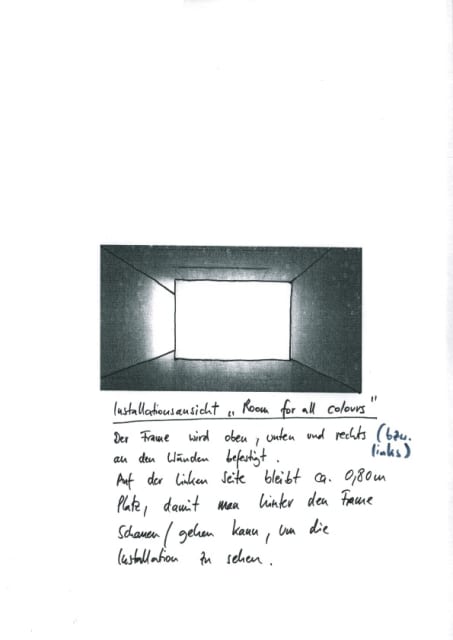 Installationsansicht „Room for all colours"
Der Frame wird oben, unten und rechts (bzw. links)
an den Wänden befestigt.
Auf der linken Seite bleibt ca. 0,80m
Platz, damit man hinter den Frame
schauen/gehen kann, um die
Installation zu sehen.